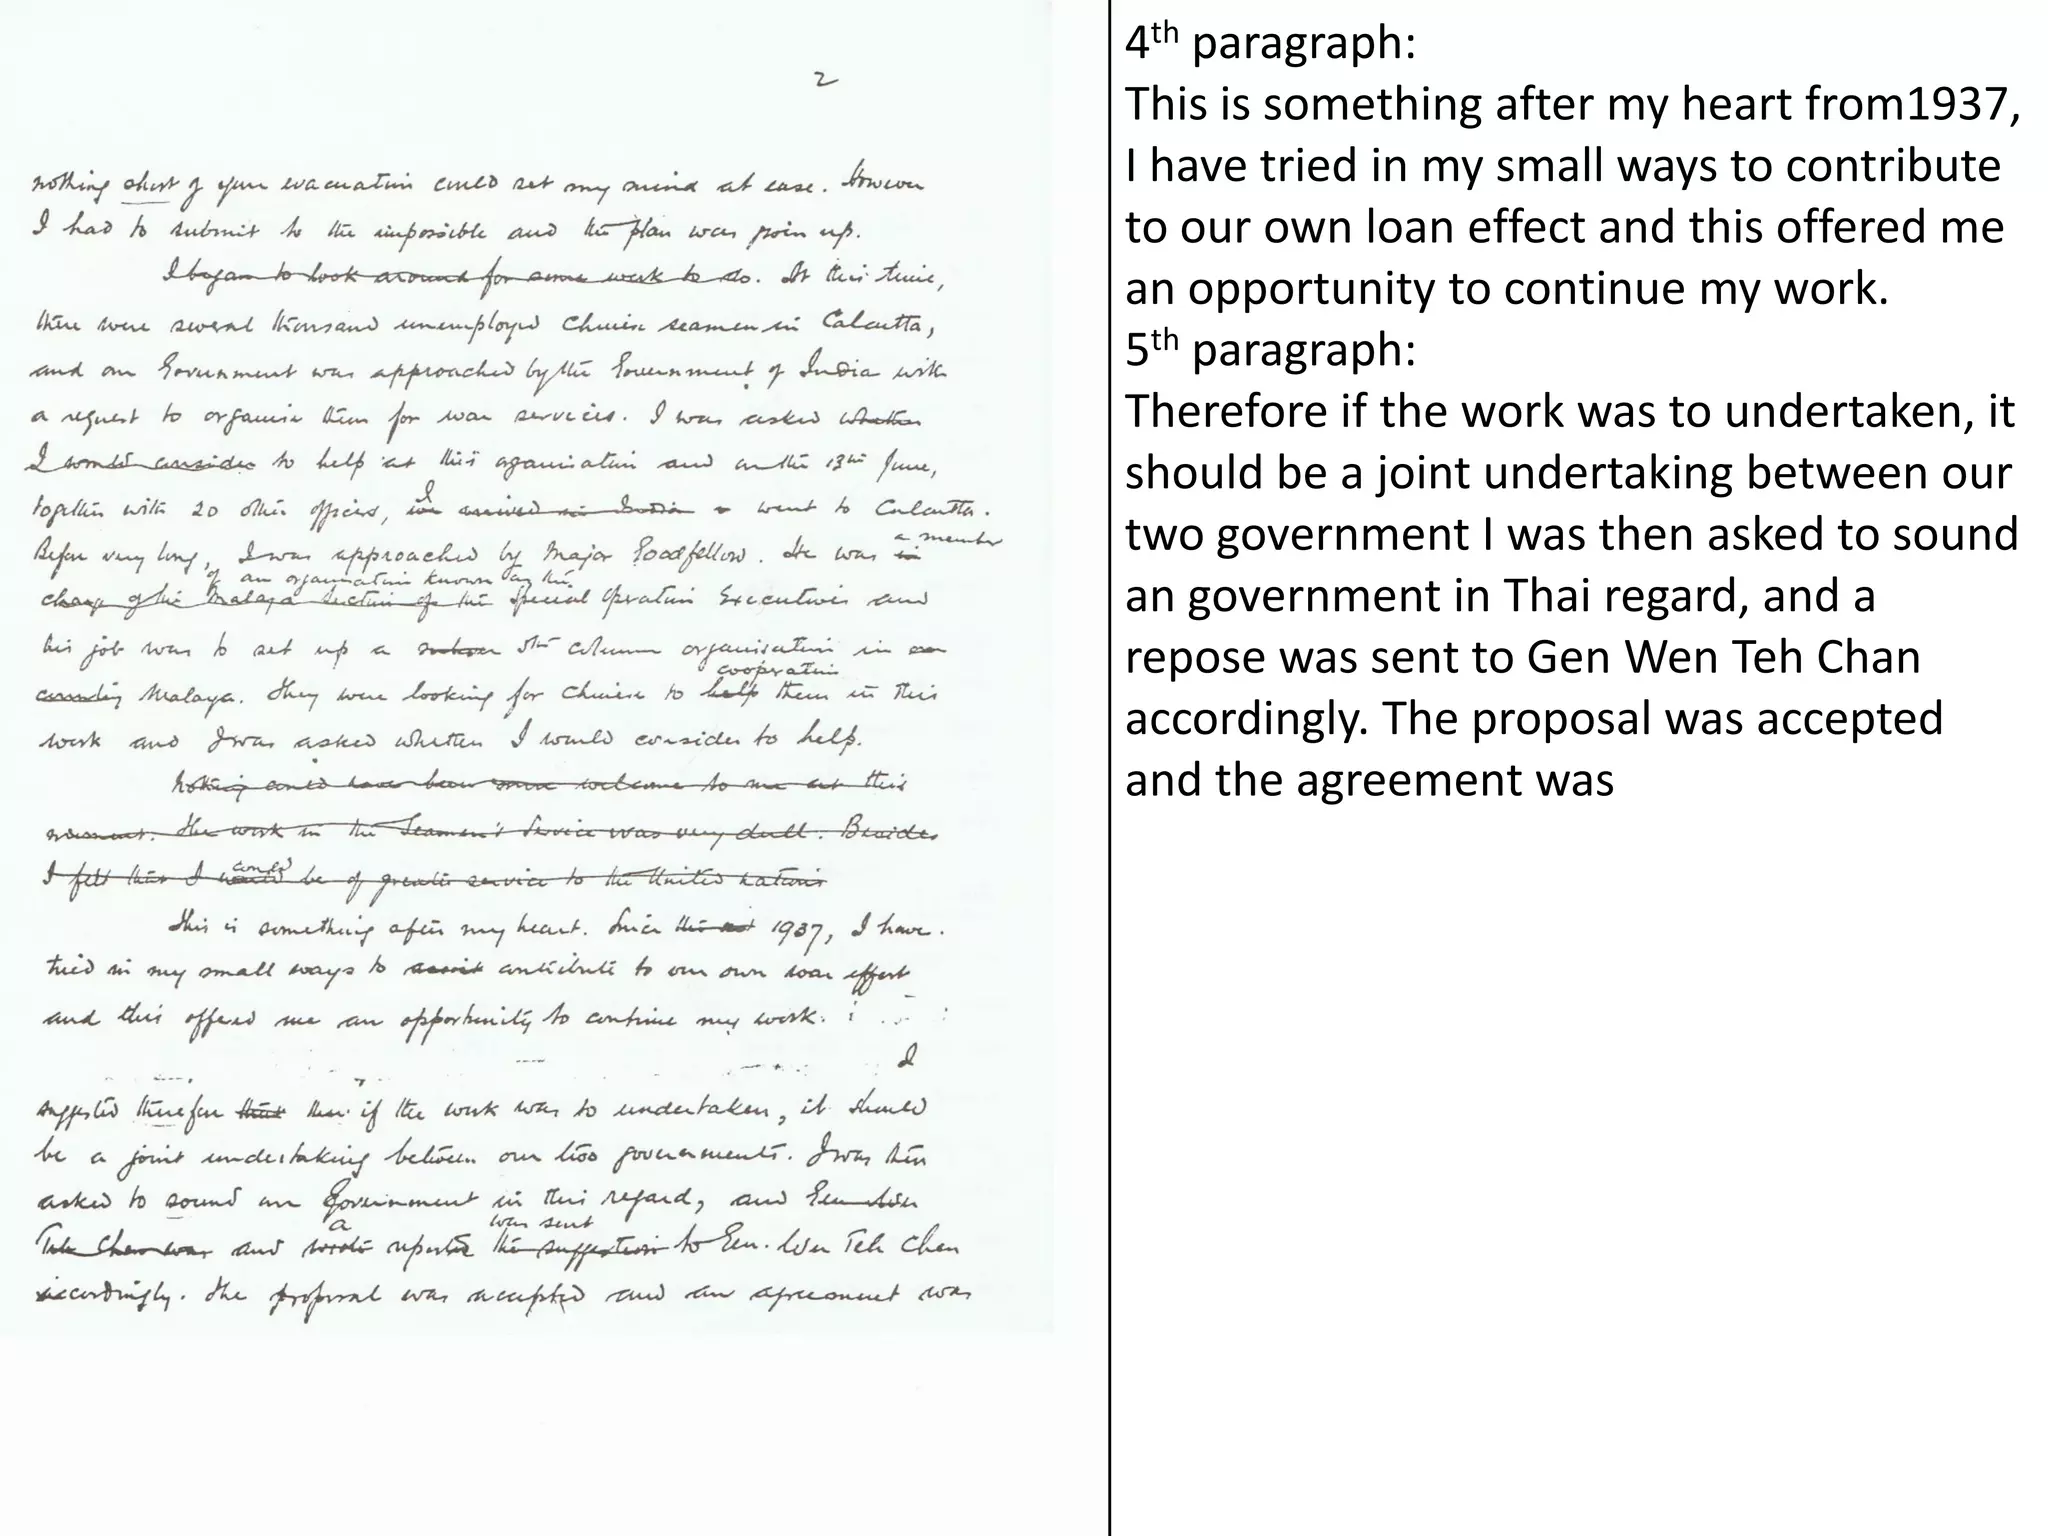 2
nothing short of your evacuation could set my mind at ease. However
I had to submit to the impossible and the plan was given up.
I began to look around for some work to do. At this time,
there were several thousand unemployed Chinese seamen in Calcutta,
and our Government was approached by the Government of India with
a request to organise them for war services. I was asked whether
I would consider to help at this organisation and on the 13th June,
together with 20 other officers, we arrived in India I went to Calcutta.
Before very long, I was approached by Major Goodfellow. He was in a member
of an organisation known as the
charge of the Malaya Section of the Special Operation Executives and
his job was to set up a 5th column organisation in
Malaya. They were looking for Chinese to help cooperation them in this
work and I was asked whether I would consider to help.
Nothing could have been more welcome to me at this
moment. The work in the Seamen's Service was very dull. Besides
I felt that I would could be of greater service to the United Nations
This is something after my heart. Since 1937, I have
tried in my small ways to assist contribute to our own war effort
and this offered me an opportunity to continue my work.
I
suggested therefore that if the work was to undertaken, it should
be a joint undertaking between our two governments. I was then
asked to sound our Government in this regard, and Gen Wen
a was sent
Teh Chen was and wrote the suggestion to Gen. Wen Teh Chen
accordingly. The proposal was accepted and an agreement was
4th paragraph:
This is something after my heart from1937,
I have tried in my small ways to contribute
to our own loan effect and this offered me
an opportunity to continue my work.
5th paragraph:
Therefore if the work was to undertaken, it
should be a joint undertaking between our
two government I was then asked to sound
an government in Thai regard, and a
repose was sent to Gen Wen Teh Chan
accordingly. The proposal was accepted
and the agreement was